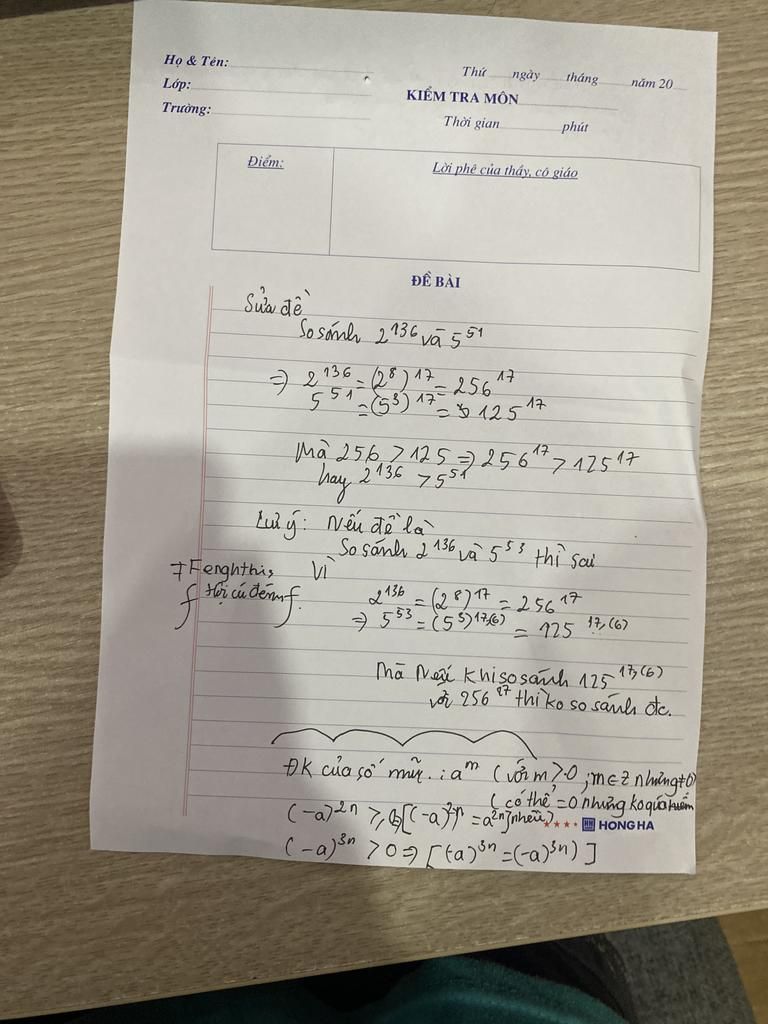 Họ & Tên:
Lớp:
Trường:
Thứ ngày tháng năm 20
KIỂM TRA MÔN
Thời gian phút
Điểm:
Lời phê của thầy, cô giáo
ĐỀ BÀI
Sửa đề
So sánh 2^136 và 5^51
=> 2^136 = (2^8)^17 = 256^17
5^51 = (5^3)^17 = 125^17
Mà 256 > 125 => 256^17 > 125^17
hay 2^136 > 5^51
Lưu ý: Nếu đề là
So sánh 2^136 và 5^53 thì sai
Vì
2^136 = (2^8)^17 = 256^17
=> 5^53 = (5^3)^17,(6) = 125^17,(6)
Mà khi so sánh 125^17,(6)
với 256^17 thì ko so sánh đc.
ĐK của số mũ: a^m (với m > 0; m ∈ Z nhưng ≠ 0)
(có thể = 0 nhưng ko quá
(-a)^2n ≥ [(-a)^2n = a^2n] nhều)
HONG HA
(-a)^3n > 0 => [(-a)^3n = (-a)^3n]